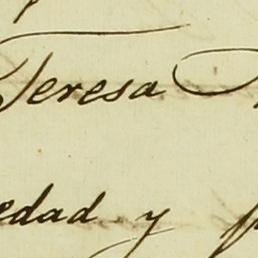 Teresa
edad y